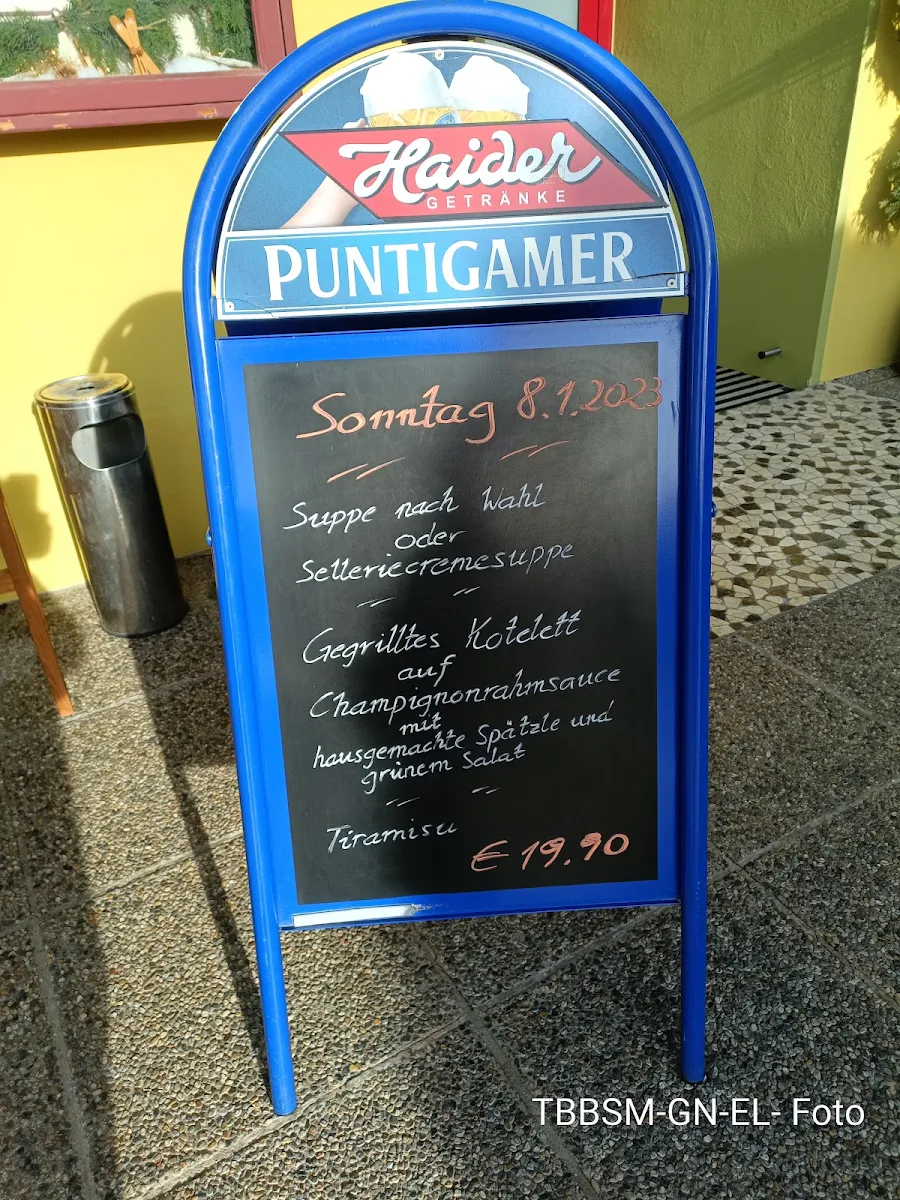 Haider
GETRÄNKE
PUNTIGAMER
Sonntag 8.1.2023
Suppe nach Wahl
oder
Selleriecremesuppe
Gegrilltes Kotelett
auf
Champignonrahmsauce
mit
hausgemachte Spätzle und
grünem Salat
Tiramisu
€ 19.90
TBBSM-GN-EL- Foto